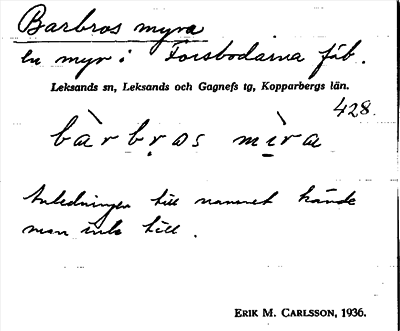 Barbros myra
en myr i Forsbodarna fäb.
Leksands sn, Leksands och Gagnefs tg, Kopparbergs län.
428.
bàrbros mìra
Anledningen till namnet kände
man inte till.
ERIK M. CARLSSON, 1936.